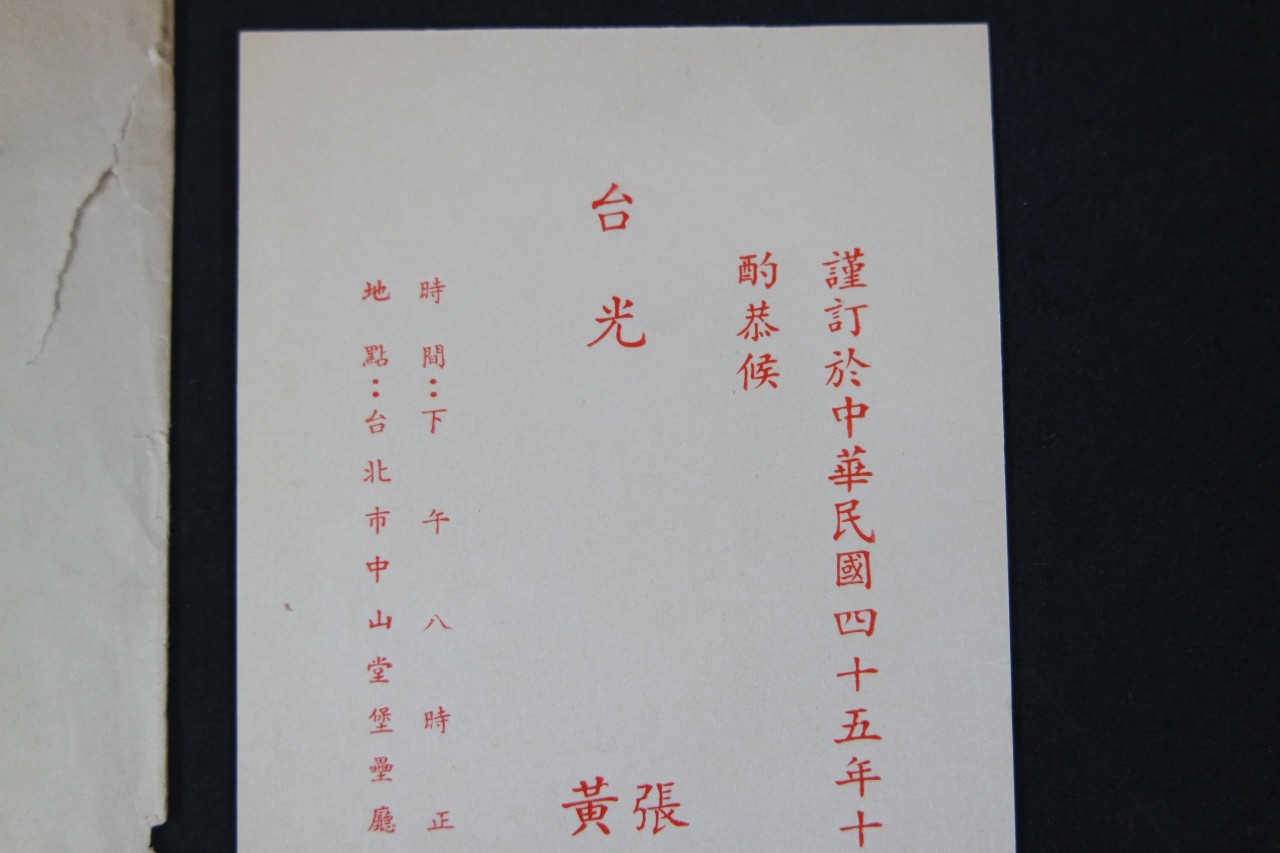 謹訂於中華民國四十五年十
酌恭候
台光
張
黃
時間：下午八時正
地點：台北市中山堂堡壘廳